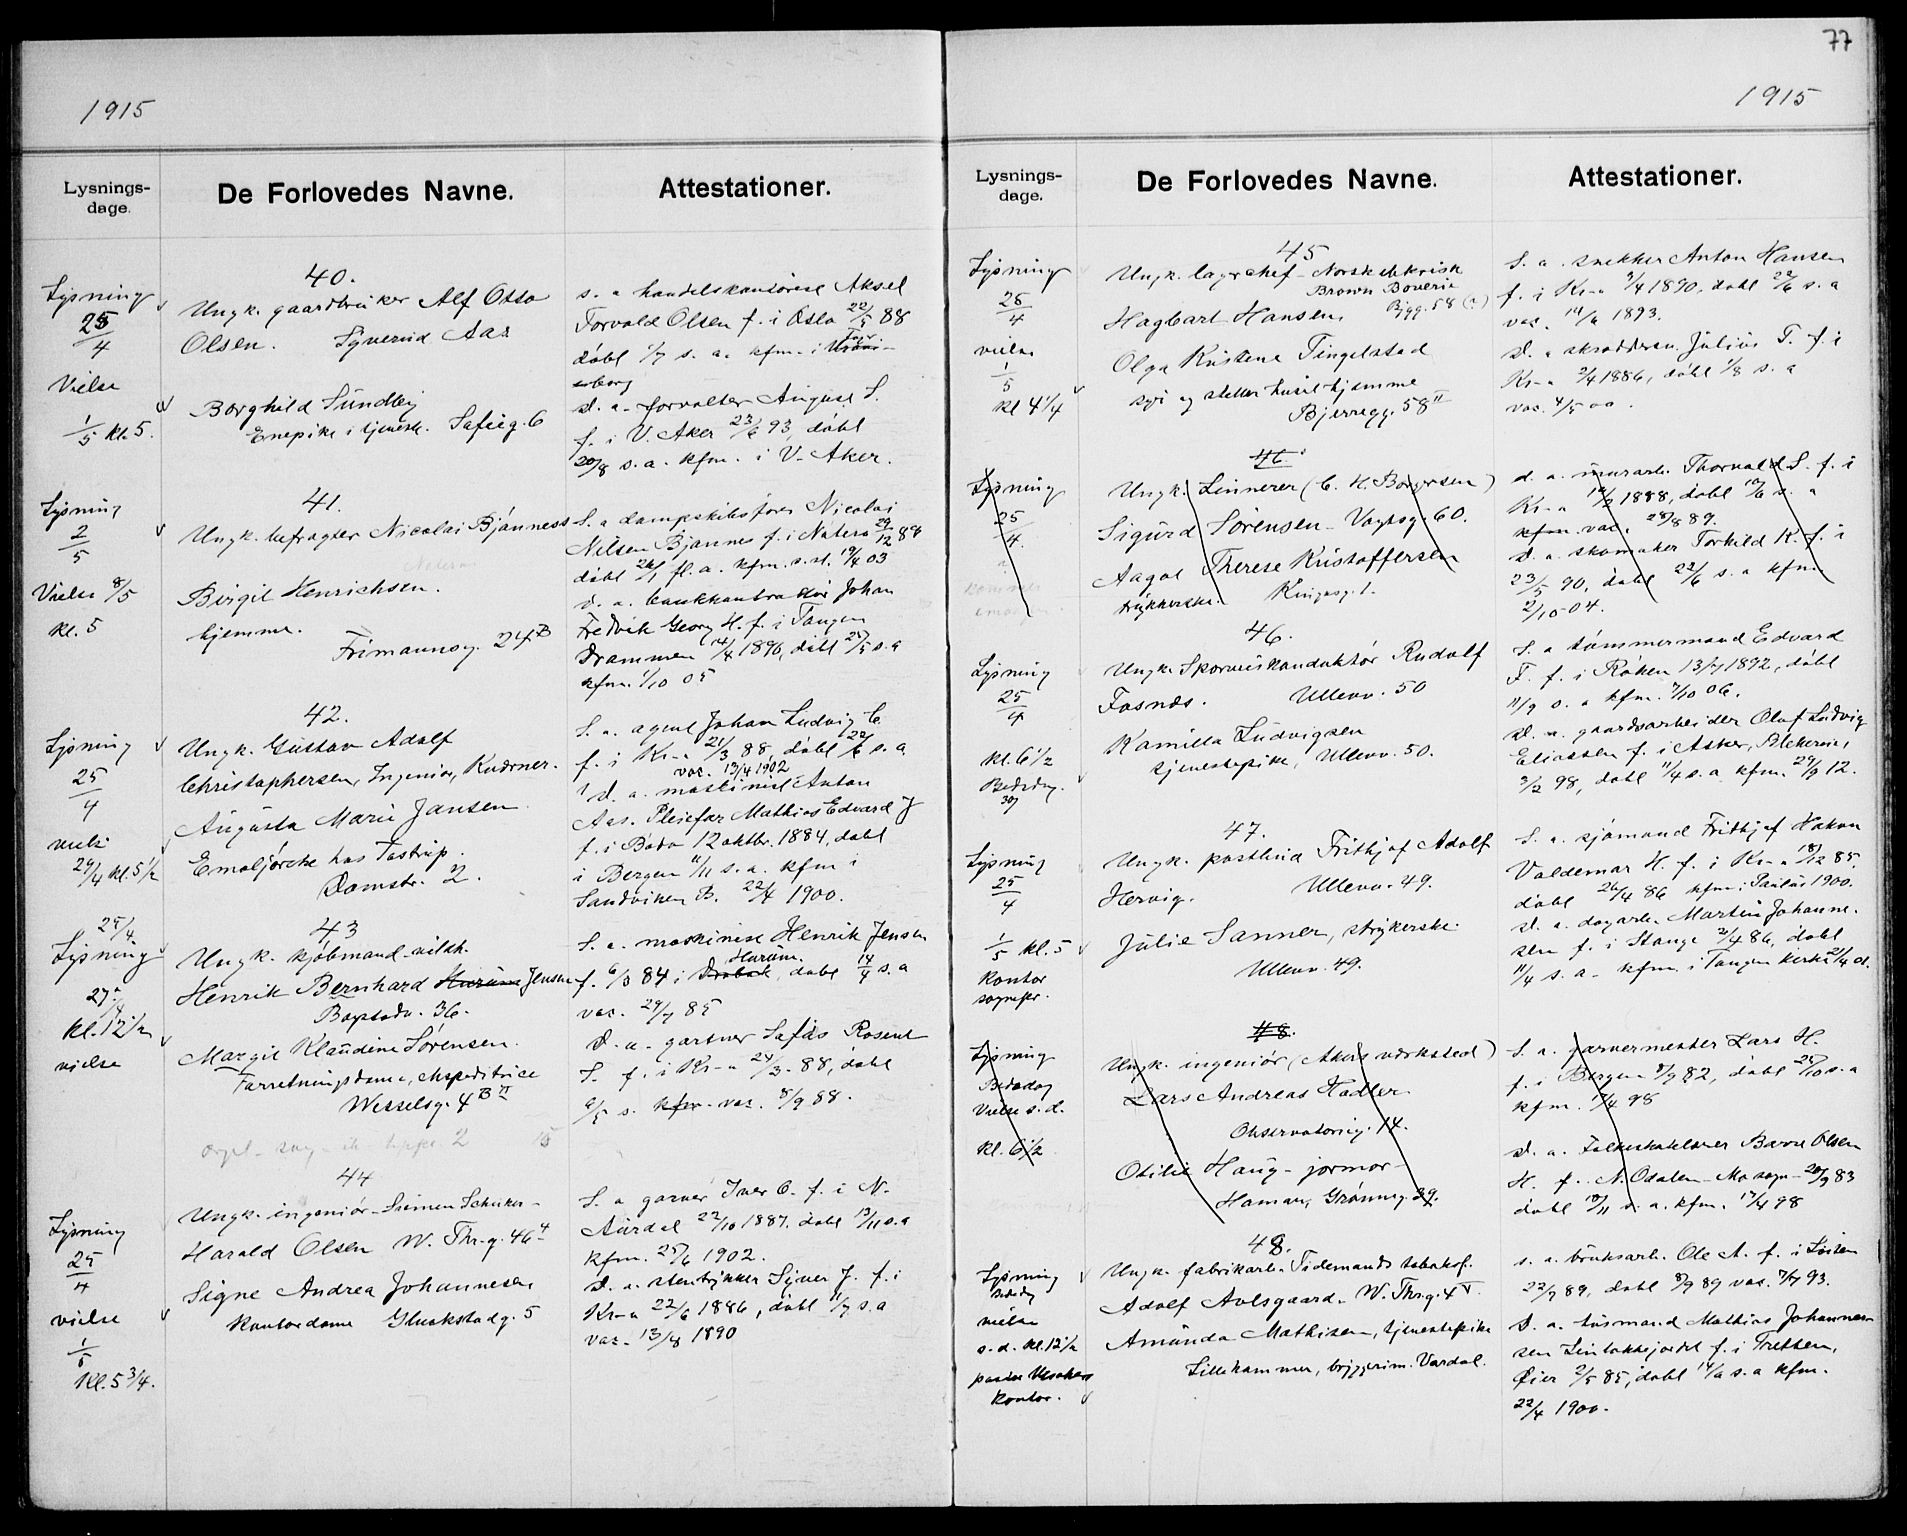 77
1915
Lysnings-
dage.
De Forlovedes Navne.
Attestationer.
Lysning
25/4
Vielse
1/5 kl. 5.
40.
Ungk. gaardbruker Alf Otto
Olsen. Syverud Aas
Borghild Sundby
Enepike i tjeneste. Sofieg. 6
s. a handelskontorist Aksel
Torvald Olsen f. i Oslo 22/5 88
døbt 1/7 s. a. kfm. i
borg
d. a. forvalter August S.
f. i V. Aker 23/6 93, døbt
20/8 s. a. kfm. i V. Aker.
Lysning
2/5
Vielse 8/5
kl. 5
41.
Ungk. befragter Nicolai Bjønness
Birgit Henrichsen.
hjemme.
Frimannsg. 24B
S. a dampskibsfører Nicolai
Nilsen Bjønnes f. i 29/12 88
døbt 26/1 fl. a. kfm. s. st. 19/4 03
d. a. bankkontrollør Johan
Fredrik Georg H. f. i Tangen
Drammen 14/4 1890, døbt 25/5 s. a
kfm. 1/10 05
Lysning
25/4
vielse
29/4 kl. 5 1/2
42.
Ungk. Gustav Adolf
Christophersen, Ingeniør,
Augusta Marie Jansen
Emaljørske hos Tostrup.
Damstr. 2.
S. a. agent Johan Ludvig C.
f. i Kr-a 21/3 88, døbt 22/6 s. a
vac. 13/4 1902
d. a. maskinist Anton
Mathias Edvard J
f. i Bodø 12 oktbr. 1884, døbt
i Bergen 11/11 s. a. kfm i
Sandviken B. 22/4 1900.
25/4
Lysning
27/4
kl. 12 1/2
vielse
43
Ungk. kjøbmand
Henrik Bernhard Hurum Jensen
Bogstadv. 36.
Margit Klaudine Sørensen.
Forretningsdame, ekspeditrice
Wesselsg. 4 B II
S. a. maskinist Henrik Jensen
Hurum.
f. 6/3 84 i Drøbak, døbt 14/4 s. a
vac. 29/7 85
D. a. gartner Rosent
S. f. i Kr-a 24/3 - 88, døbt
s. kfm. vac. 8/9 88.
Lysning
25/4
vielse
1/5
kl. 5 3/4.
44
Ungk. ingeniør - Siemen Schuker -
Harald Olsen W. Thr.g. 46 4
Signe Andrea Johannesen
kontordame Glückstadg. 5
S. a garver Iver O. f. i N.
Aurdal 22/10 1887. døbt 13/11 s. a
kfm. 25/6 1902.
D. a. stentrykker Syver J. f. i
Kr-a 22/6 1886, døbt 11/7 s. a
vac. 13/8 1890
1915
Lysnings-
dage.
De Forlovedes Navne.
Attestationer.
Lysning
25/4
vielse
1/5
kl 4 1/4
45
Ungk. lagerchef - Norsk elektrisk
Brown Boveri
Hagbart Hansen, Bjgg. 58
Olga Kristine Tingelstad
syr og steller huset hjemme
Bjerregg. 58 II
S. a. snekker Anton Hansen
f. i Kr-a 3/4 1890, døbt 22/6 s. a
vac. 14/6 1893.
D. a skræddersv. Julius T. f. i
Kr-a 2/4 1886, døbt 1/8 s. a
vac. 4/5 00.
Lysning
25/4.
46
Ungk. Linnerer (C. H. Borgersen)
Sigurd Sørensen - Vogtsg. 60.
Aagot Therese Kristoffersen
trykkerske. Ringsg. 1.
d. a. murarb. Thorvald S. f. i
Kr-a 12/2 1888, døbt 10/6 s. a
kfm. vac. 28/8 89.
d. a. skomaker Torkild K. f. i
23/5 90, døbt 22/6 s. a kfm
2/10-04.
Lysning
25/4
kl. 6 1/2
Bededag.
30/
46.
Ungk. Sporveiskonduktør Rudolf
Fosnæs. Ullevv. 50
Kamilla Ludvigsen
tjenestepike, Ullevv. 50.
S. a tømmermand Edvard
F. f. i Røken 13/7 1892, døbt
11/9 s. a kfm. 7/10 06.
D. a. gaardsarbeider Oluf Ludvig
Eliassen f. i Asker,
3/2 98, døbt 11/4 s. a. kfm. 29/9 12.
Lysning
25/4
1/5 kl. 5
kontor
sognepr.
47.
Ungk. postbud Frithjof Adolf
Hervig. Ullevv. 49.
Julie Sanner, strykerske
Ullevv. 49.
S. a. sjømand Frithjof Hakon
Valdemar H. f. i Kr-a 18/12 85.
døbt 26/4 86 kfm. i Paulus 1900.
d. a. dagarb. Martin Johanne-
sen f. i Stange 21/4 86, døbt
11/4 s. a. kfm. i Tangen kirke
Lysning
Bededag
Vielse s. d.
kl. 6 1/2
48.
Ungk. ingeniør (Akers værksted)
Lars Andreas Hadler
Observatorieg. 14.
Otilie Haug - jormor -
Hamar, Grønneg. 39.
S. a. garvermester Lars H.
f. i Bergen 8/9 82, døbt 25/10 s. a
kfm. 17/4 98
D. a. Folkeskolelærer Bavve Olsen
H. f. N. Odalen - Mo sogn - 20/9 83
døbt 18/11 s. a. kfm. 17/4 98
Lysning
Bededag
vielse
s. d. kl. 12 1/2
kontor.
48.
Ungk. fabrikarb. Tidemands tobaksf.
Adolf Avlsgaard. W. Thr.g. 4 V
Amanda Mathisen, tjenestepike
Lillehammer, bryggerim. Vardal.
s. a. bruksarb. Ole A. f. i
22/7 89, døbt 8/9 89 vac. 7/7 93.
D. a. husmand Mathias Johannes-
sen f. i Tretten,
Øier 2/5 85, døbt 14/6 s. a kfm.
22/4 1900.